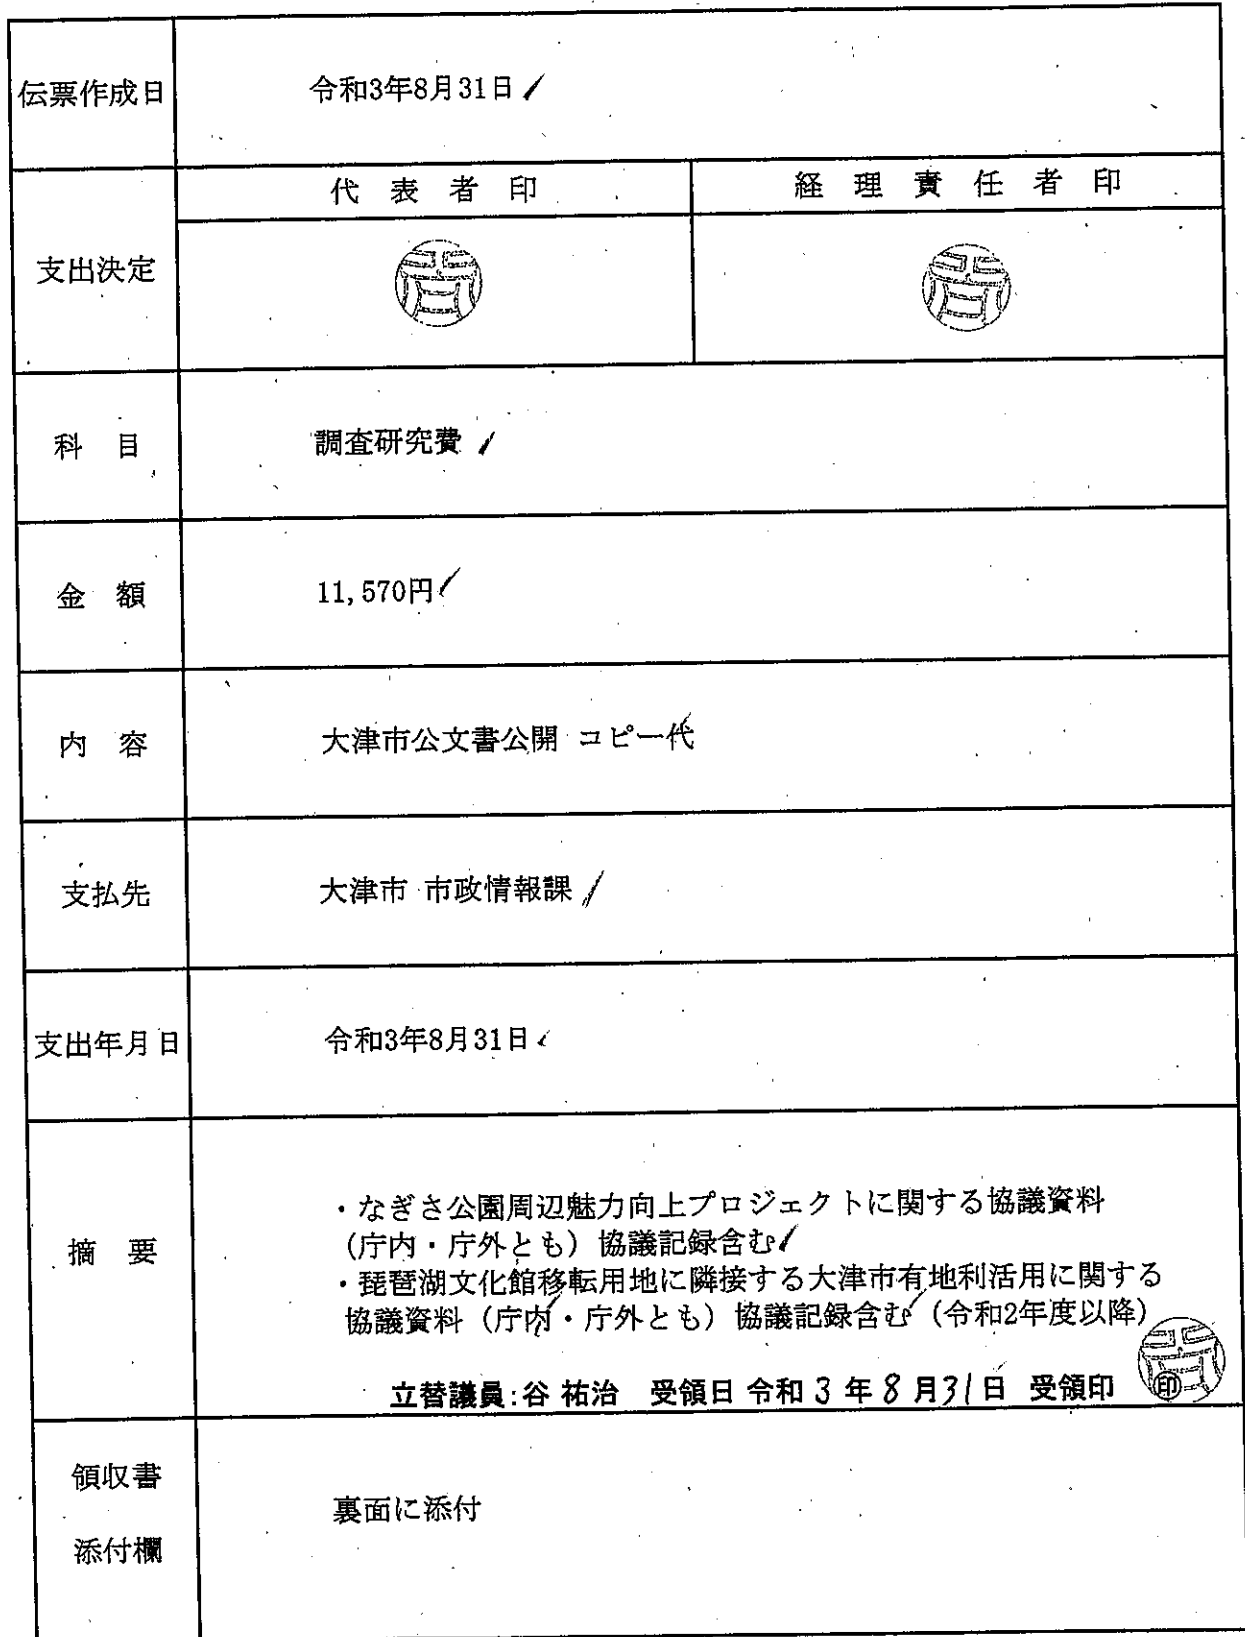 伝票作成日 令和3年8月31日
代表者印 経理責任者印
支出決定
科 目 調査研究費
金 額 11,570円
内 容 大津市公文書公開 コピー代
支払先 大津市 市政情報課
支出年月日 令和3年8月31日
・なぎさ公園周辺魅力向上プロジェクトに関する協議資料
(庁内・庁外とも)協議記録含む
摘 要
・琵琶湖文化館移転用地に隣接する大津市有地利活用に関する
協議資料(庁内・庁外とも)協議記録含む(令和2年度以降)
立替議員:谷 祐治 受領日 令和3年8月31日 受領印 印
領収書
裏面に添付
添付欄